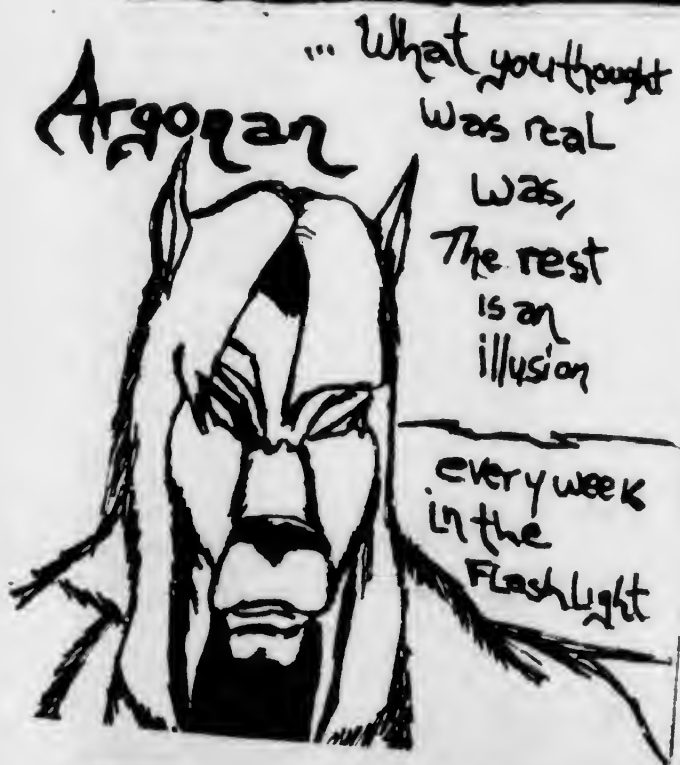 Argonan
... What you thought
Was real
was,
The rest
is an
illusion
every week
in the
FLashLight